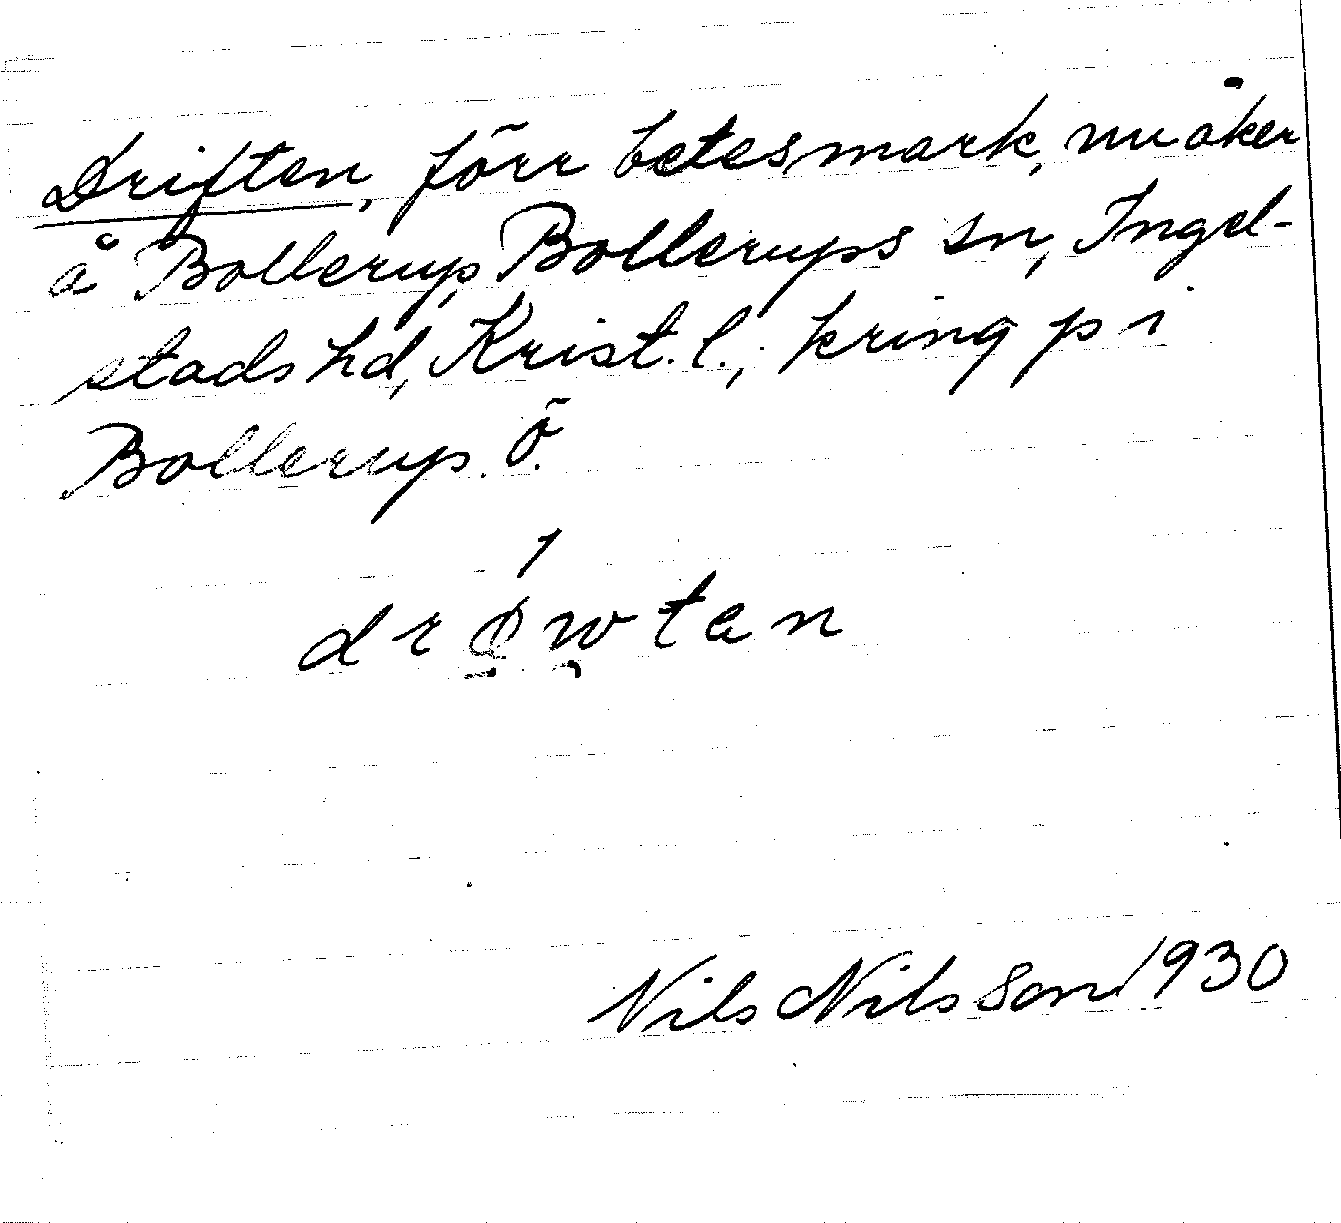 Driften, förr betesmark, nu åker
å Bollerup, Bollerups sn, Ingel-
stads hd, Krist. l., kring p i
Bollerup. Ö.
Nils Nilsson 1930